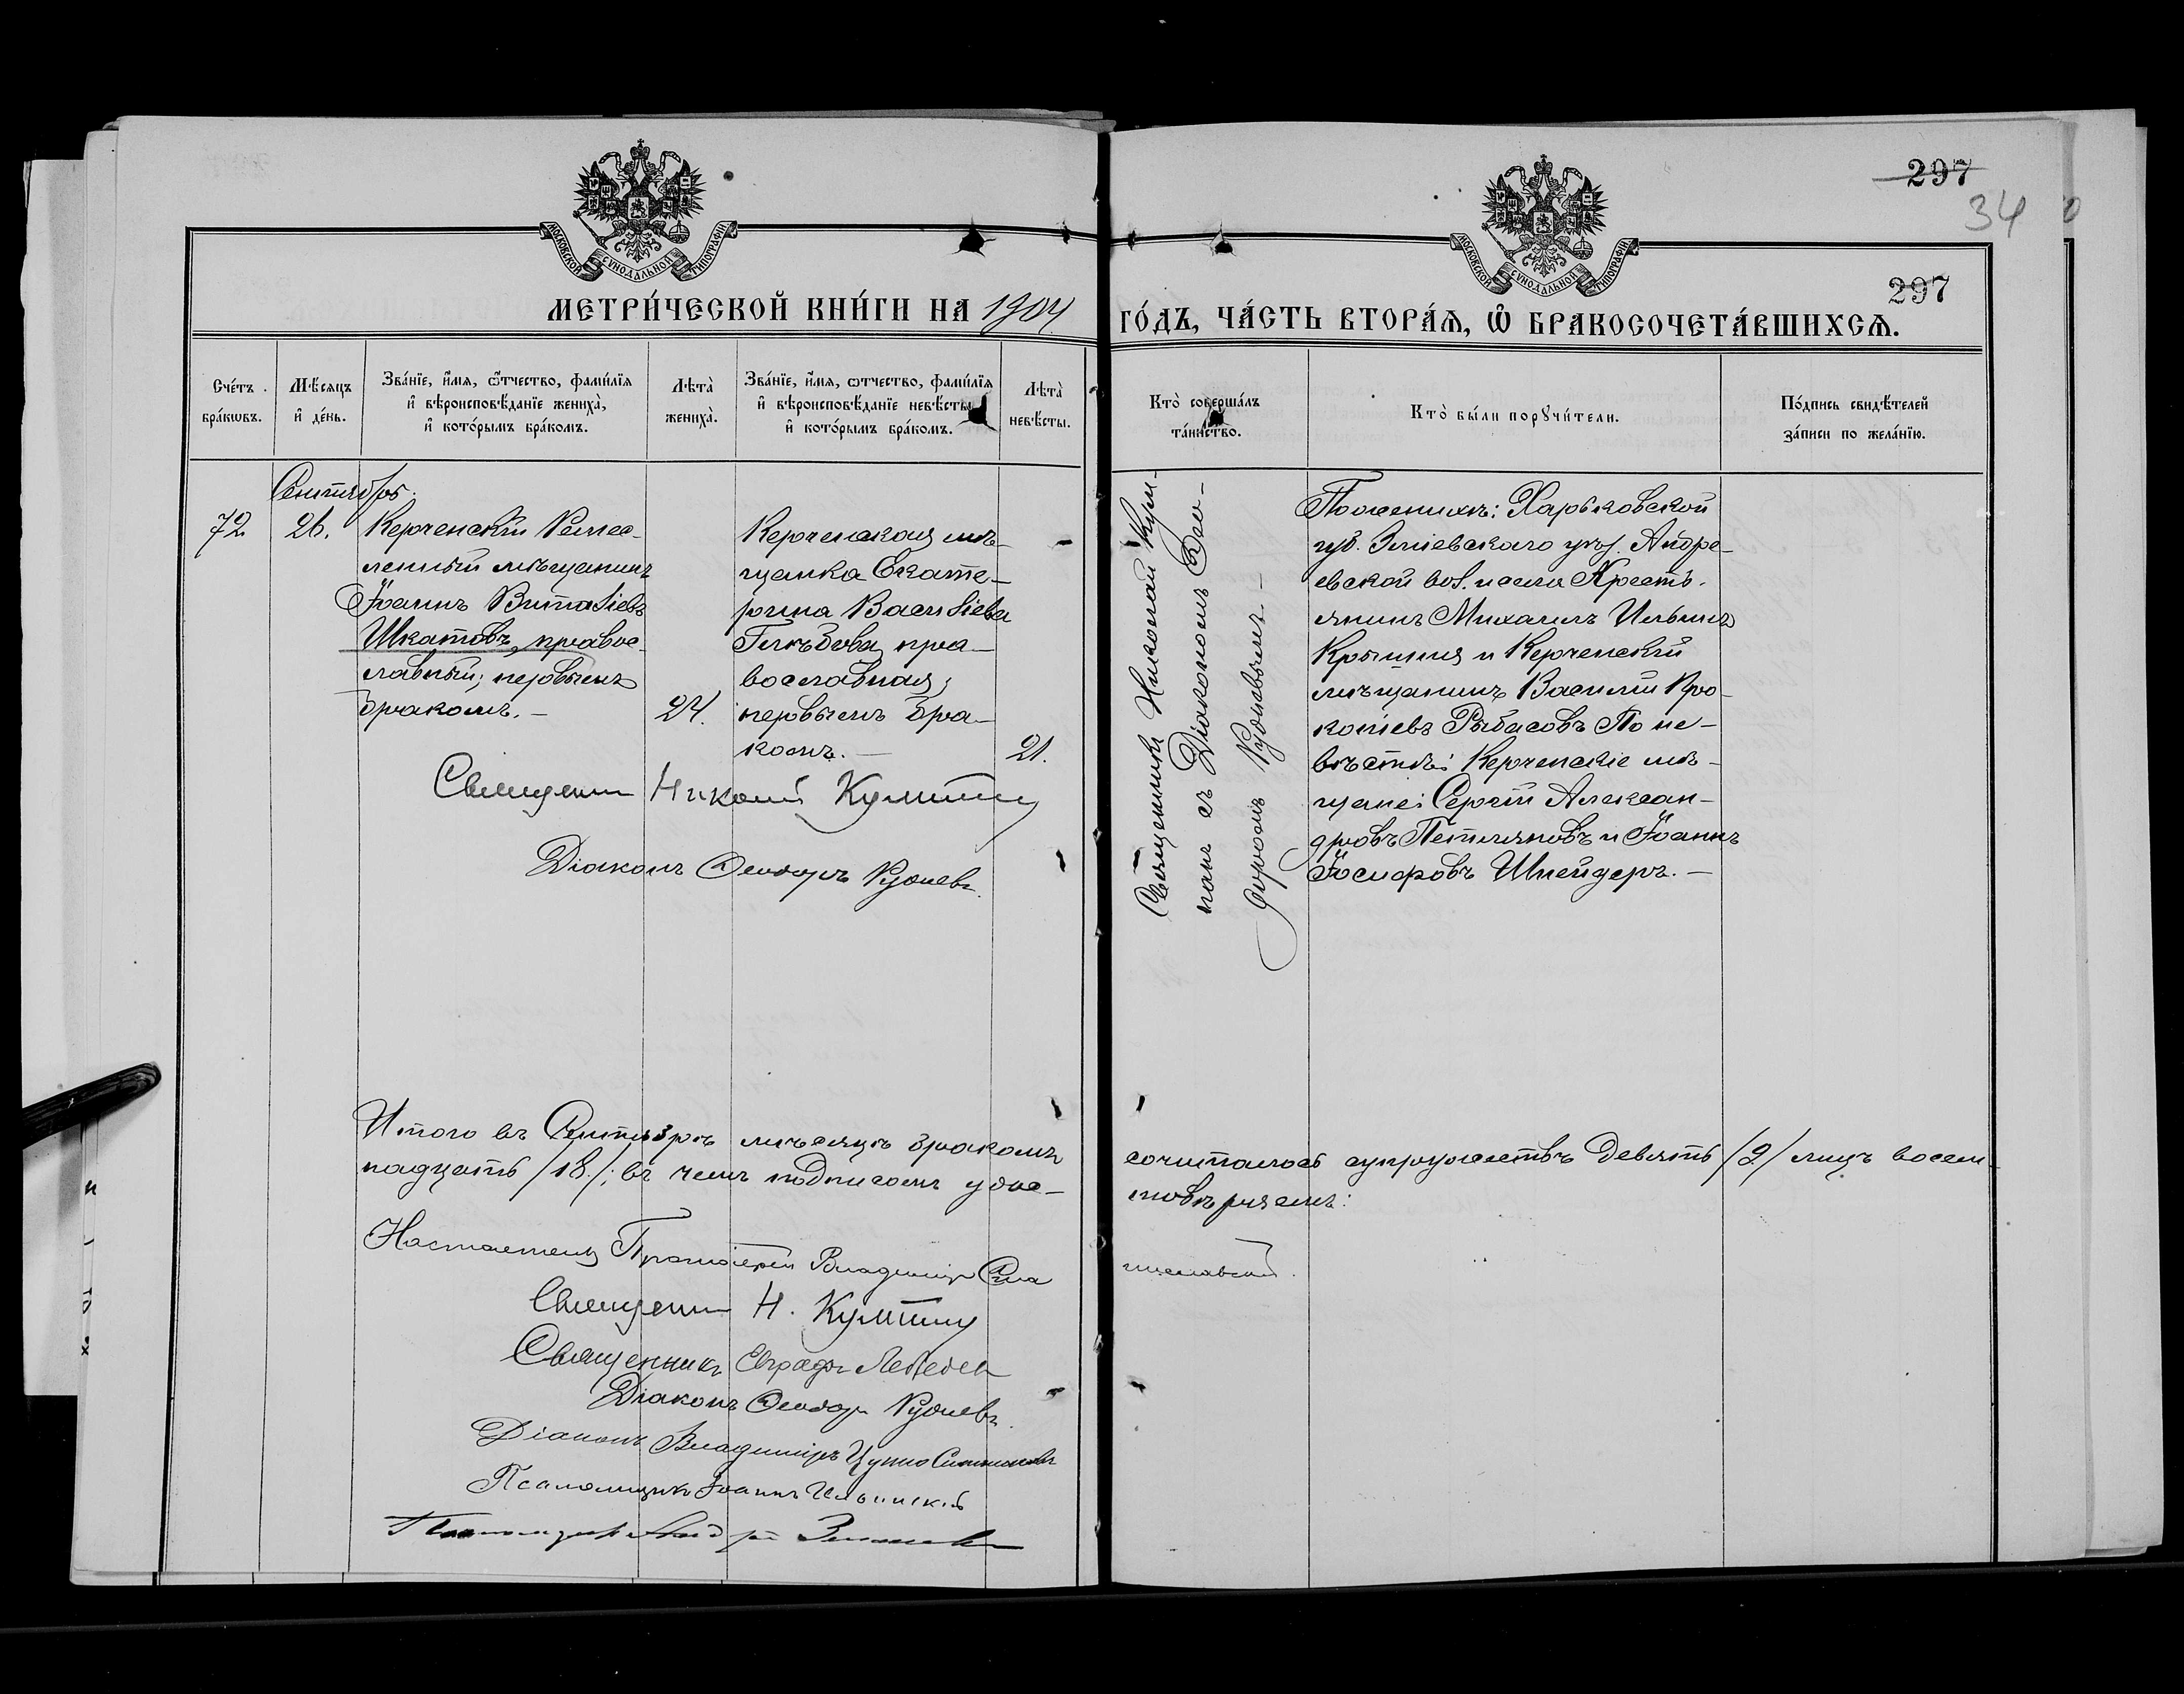 297
34
297
МОСКОВСКОЙ СѴНОДАЛЬНОЙ ТИПОГРАФІИ
МОСКОВСКОЙ СѴНОДАЛЬНОЙ ТИПОГРАФІИ
МЕТРИ́ЧЕСКОЙ КНИ́ГИ НА 1904 ГО́ДЪ, ЧА́СТЬ ВТОРА́Я, Ѽ БРАКОСОЧЕТА́ВШИХСѦ.
Сче́тъ
бра́кѡвъ.
Мѣ́сяцъ
и҆ де́нь.
Зва́нїе, и҆́мя, ѻ҆́тчество, фами́лїя
и҆ вѣроисповѣ́данїе жениха̀,
и҆ кото́рымъ бра́комъ.
Лѣта̀
жениха̀.
Зва́нїе, и҆́мя, ѻ҆́тчество, фами́лїя
и҆ вѣроисповѣ́данїе невѣ́сты
и҆ кото́рымъ бра́комъ.
Лѣта̀
невѣ́сты.
Кто̀ соверша́лъ
та́инство.
Кто̀ бы́ли порꙋчи́тели.
По́дпись свидѣ́телей
за́писи по жела́нїю.
Сентябрь.
72.
26.
Керченскій Ремес-
ленный мѣщанинъ
Іоаннъ Виталіевъ
Шкатовъ, правос-
лавный; первымъ
бракомъ. —
24.
Керченская мѣ-
щанка Екате-
рина Василіева
Глѣбова, пра-
вославная;
первымъ бра-
комъ. —
21.
Священникъ Николай Кум-
панъ съ Діакономъ Ѳео-
доромъ Рудневымъ. —
По женихѣ: Харьковской
губ. Зміевскаго уѣз. Андре-
евской вол. и села Кресть-
янинъ Михаилъ Ильинъ
и Керченскій
мѣщанинъ Василій Про-
копіевъ Рыбасовъ По не-
вѣстѣ: Керченскіе мѣ-
щане: Сергій Алексан-
дровъ и Іоаннъ
Іосифовъ Шнейдеръ. —
Священникъ Николай
Діаконъ Ѳеодоръ Рудневъ.
Итого въ Сентябрѣ мѣсяцѣ бракомъ сочиталось супружествъ девять /9/ лицъ восем-
надцать /18/; въ чемъ подписомъ удос- товѣряемъ:
Настоятель Протоіерей Владиміръ
Священникъ Н.
Священникъ Евграфъ Лебедевъ
Діаконъ Ѳеодоръ Рудневъ.
Діаконъ Владиміръ
Псаломщикъ Іоаннъ Ильинскій
Псаломщикъ